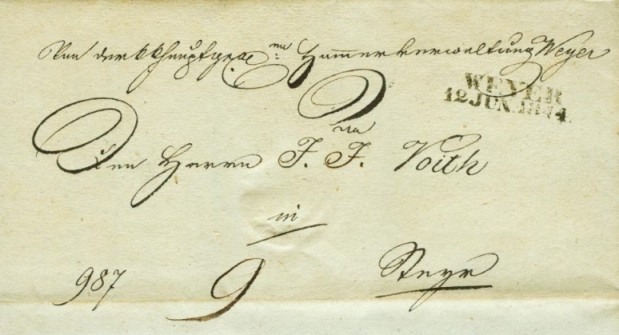 Von der k k Hauptgew. Hammerverwaltung Weyer
WEYER
12 JUN. 1844.
Den Herrn J. J. Voith
in
987 9 Steyr